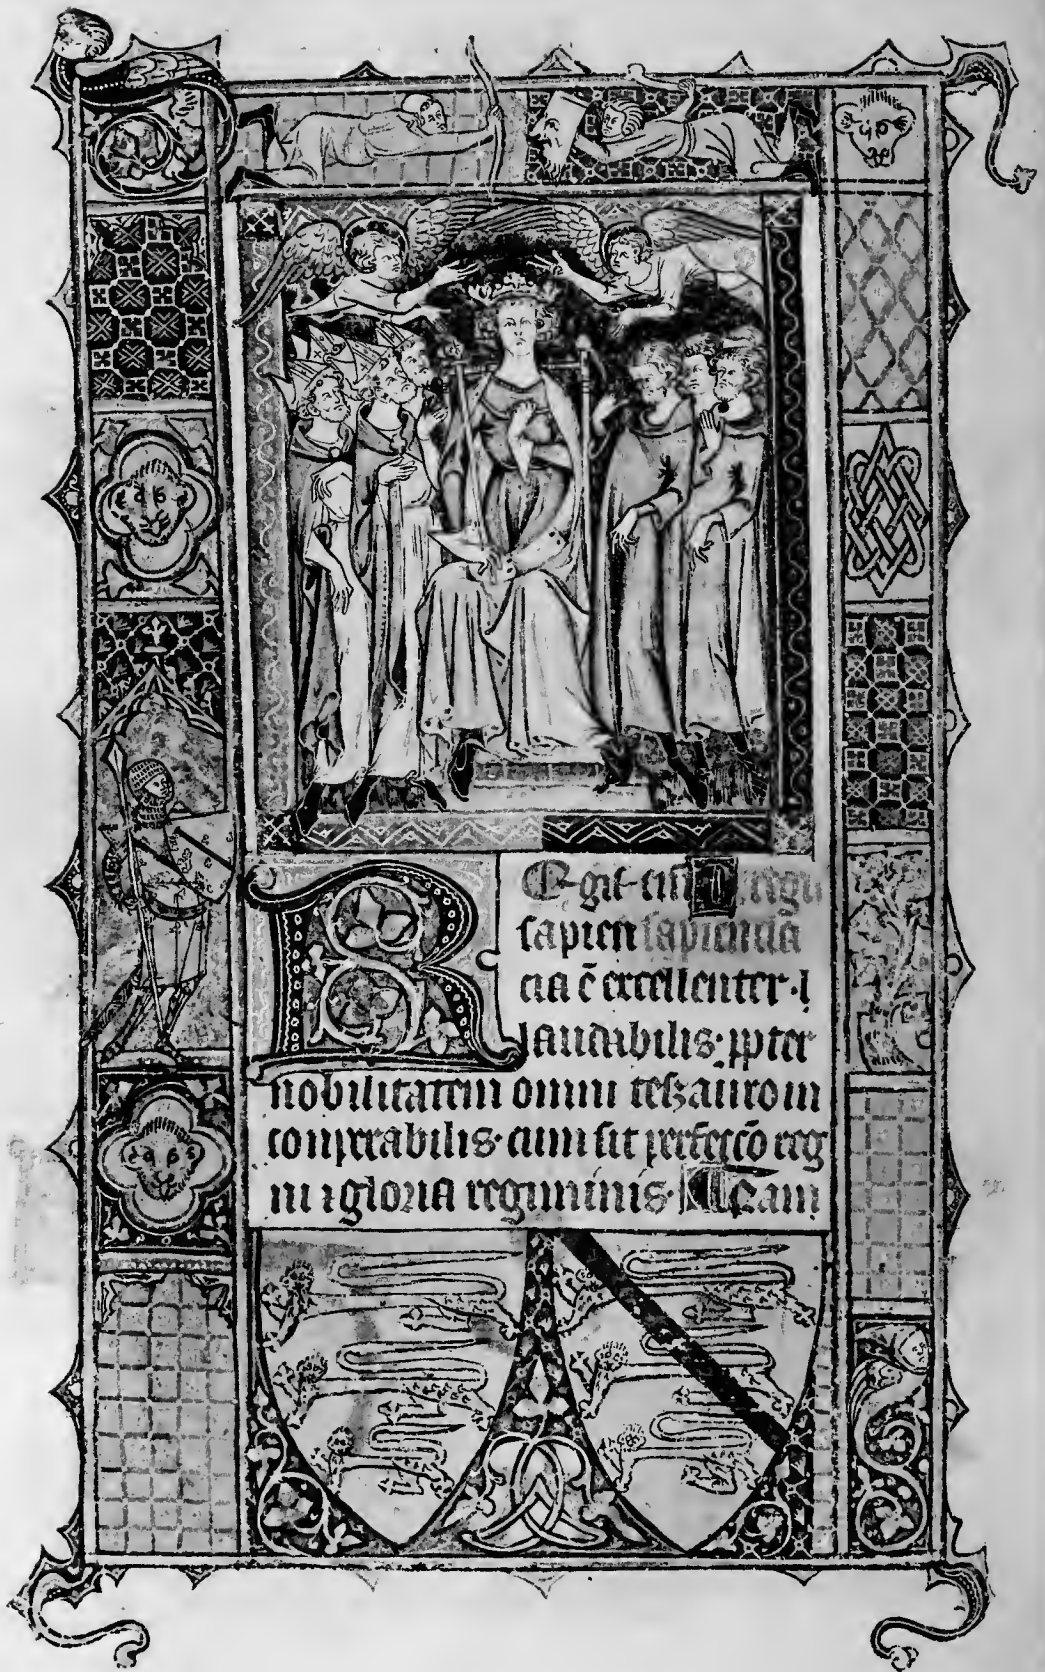 R
regu
sapien sapiencia
cia ē excellenter · l
laudabilis · ppter
nobilitatem omni teszauro in
comperabilis · cum sit perfeccō reg
ni ⁊ gloria regiminis ·